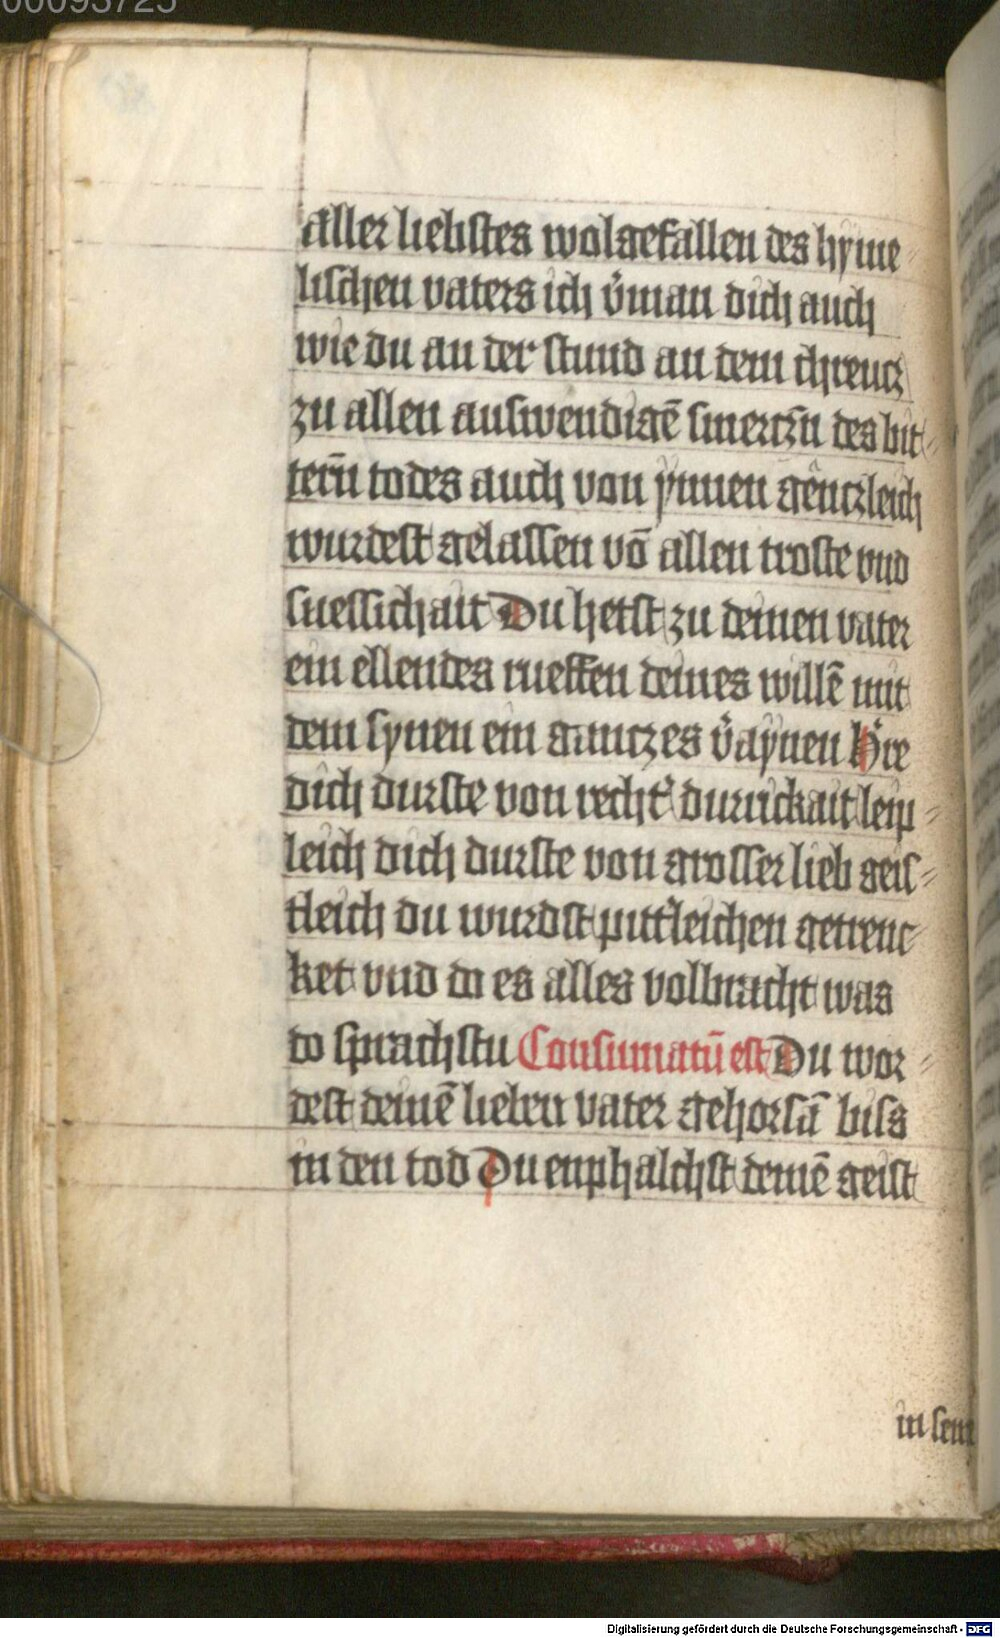 00093725
aller liebstes wolgefallen des hyme⸗
lischen vaters ich v̄man dich auch
wie du an der stund an dem chreucz
zu allen auswendigē smerczn̄ des bit⸗
tern̄ todes auch von ynnen gēnczleich
wurdest gelassen vō allen troste vnd
suessichait Du hetst zu deinen vater
ein ellendes rueffen deines willē mit
dem synen ein gancz es v̄aynen H̄re
dich durste von recht̓ durrickait leip⸗
leich dich durste von grosser lieb geis⸗
tleich du wurdst pitt̓leichen getrenc⸗
ket vnd do es alles volbracht was
do sprachstu Consumatū est Du wor⸗
dest deinē lieben vater gehorsā biss
in den tod Du enphalchst deinē geist
in sein
Digitalisierung gefördert durch die Deutsche Forschungsgemeinschaft - DFG